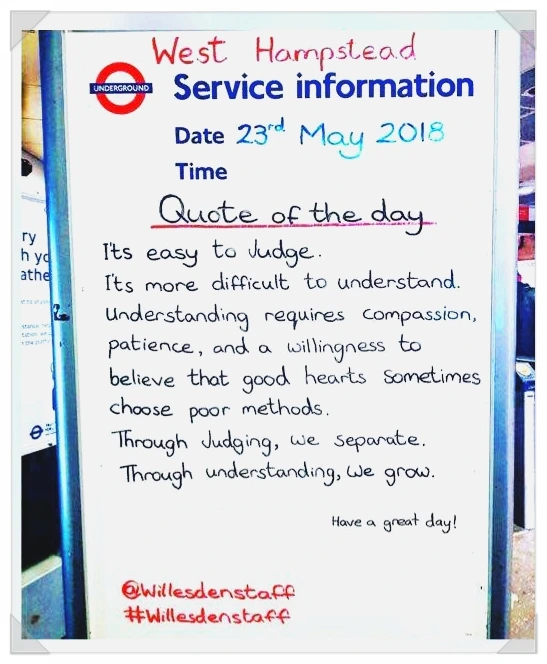 West Hampstead
UNDERGROUND
Service information
Date 23rd May 2018
Time
Quote of the day
It's easy to Judge.
It's more difficult to understand.
Understanding requires compassion,
patience, and a willingness to
believe that good hearts sometimes
choose poor methods.
Through Judging, we separate.
Through understanding, we grow.
Have a great day!
@Willesdenstaff
#Willesdenstaff
ry
h yo
athe